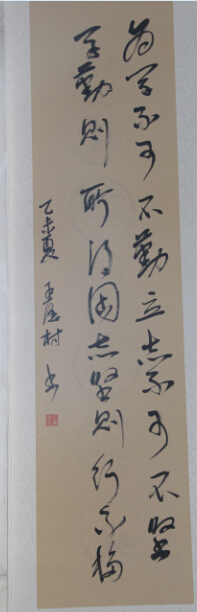 为学不可不勤立志不可不坚
学勤则所得固志坚则行不
乙未夏 村书